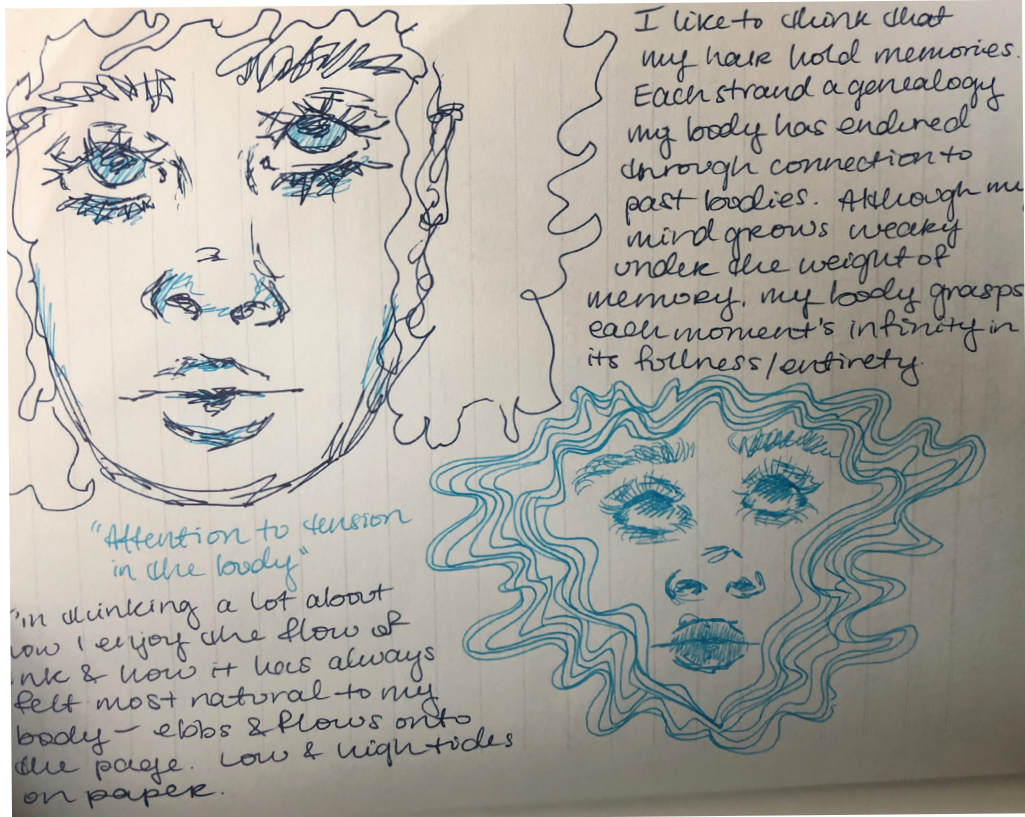 I like to think that
my hair hold memories.
Each strand a genealogy
my body has endured
through connection to
past bodies. Although my
mind grows weary
under the weight of
memory, my body grasps
each moment's infinity in
its fullness/entirety.
"Attention to tension
in the body"
I'm thinking a lot about
how I enjoy the flow of
ink & how it has always
felt most natural to my
body — ebbs & flows onto
the page. Low & high tides
on paper.